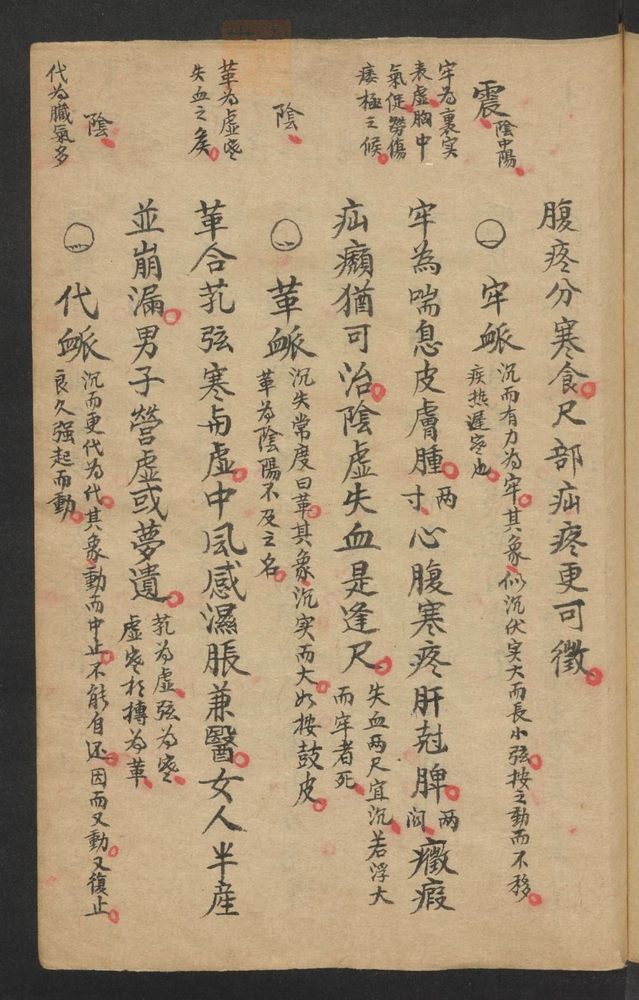 腹疼分寒食尺部疝疼更可徵
震陰中陽
牢脈
沉而有力為牢其象似沉伏实大而長小弦按之動而不移
疾热遲寒也
牢為裏实
表虛胸中
氣促勞傷
痿極之候
牢為喘息皮膚腫两寸心腹寒疼肝尅脾两関癥瘕
疝癩猶可治陰虛失血是逢尺失血两尺宜沉若浮大
而牢者死
陰
革脈
沉失常度曰革其象沉实而大如按鼓皮
革為陰陽不及之名
革為虛寒
失血之矦
革合芤弦寒与虛中風感濕脹兼醫女人半産
並崩漏男子營虛或夢遺芤为虛弦为寒
虛寒相搏为革
陰
代脈
沉而更代为代其象動而中止不能自还因而又動又復止
良久强起而動
代为臓氣多